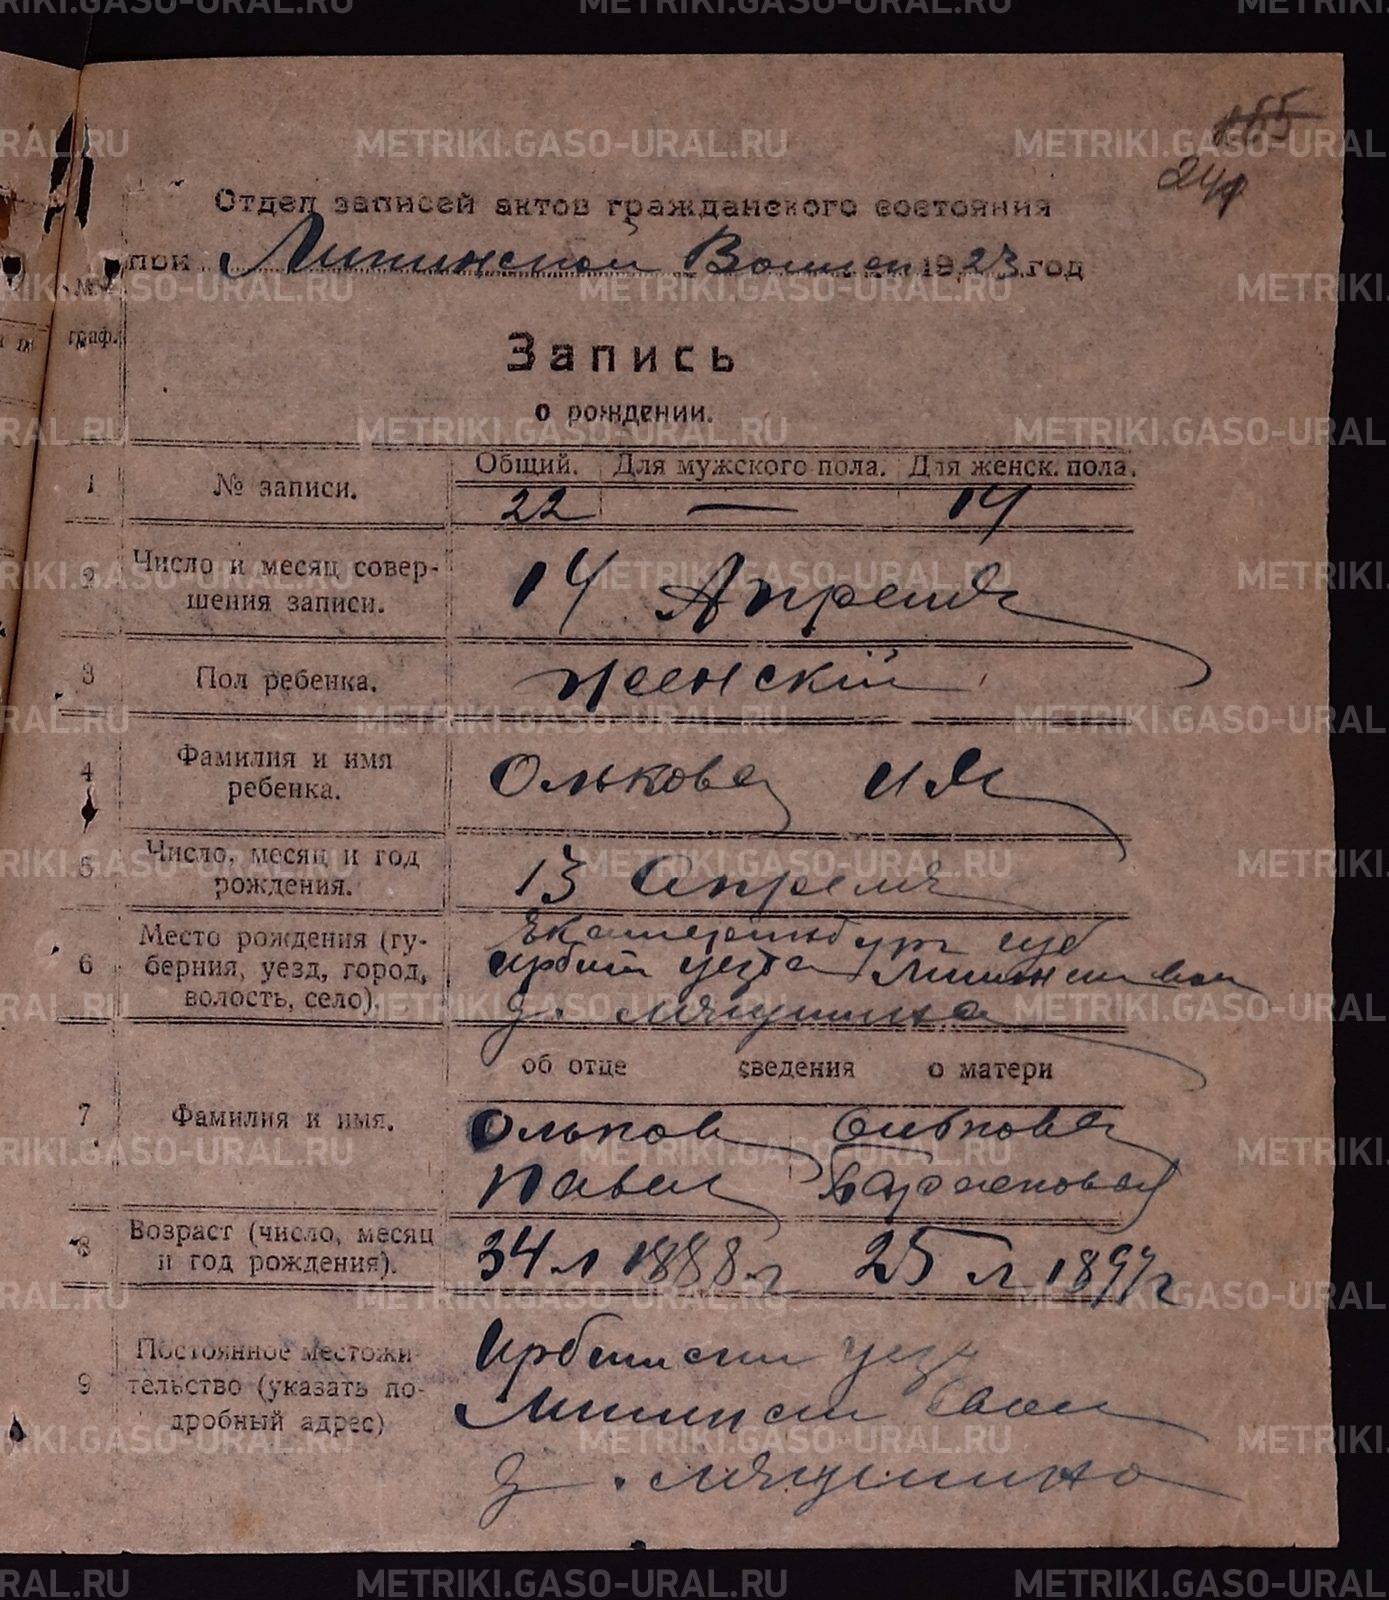 24
Отдел записей актов гражданского состояния
при Липинской Волисп 1923 год
№№
граф.
Запись
о рождении.
1 № записи. Общий. Для мужского пола. Для женск. пола.
22 — 14
2 Число и месяц совер-
шения записи. 14 Апреля
3 Пол ребенка. женскій
4 Фамилия и имя
ребенка. Олькова Ия
5 Число, месяц и год
рождения. 13 Апреля
6 Место рождения (гу-
берния, уезд, город,
волость, село). Екатеринбург губ
Ирбит уезда
д.
об отце сведения о матери
7 Фамилия и имя. Ольков
Павел
8 Возраст (число, месяц
и год рождения). 34 л 1888 г 25 л 1897 г
9 Постоянное местожи-
тельство (указать по-
дробный адрес) Ирбитски уезд
д.
METRIKI.GASO-URAL.RU